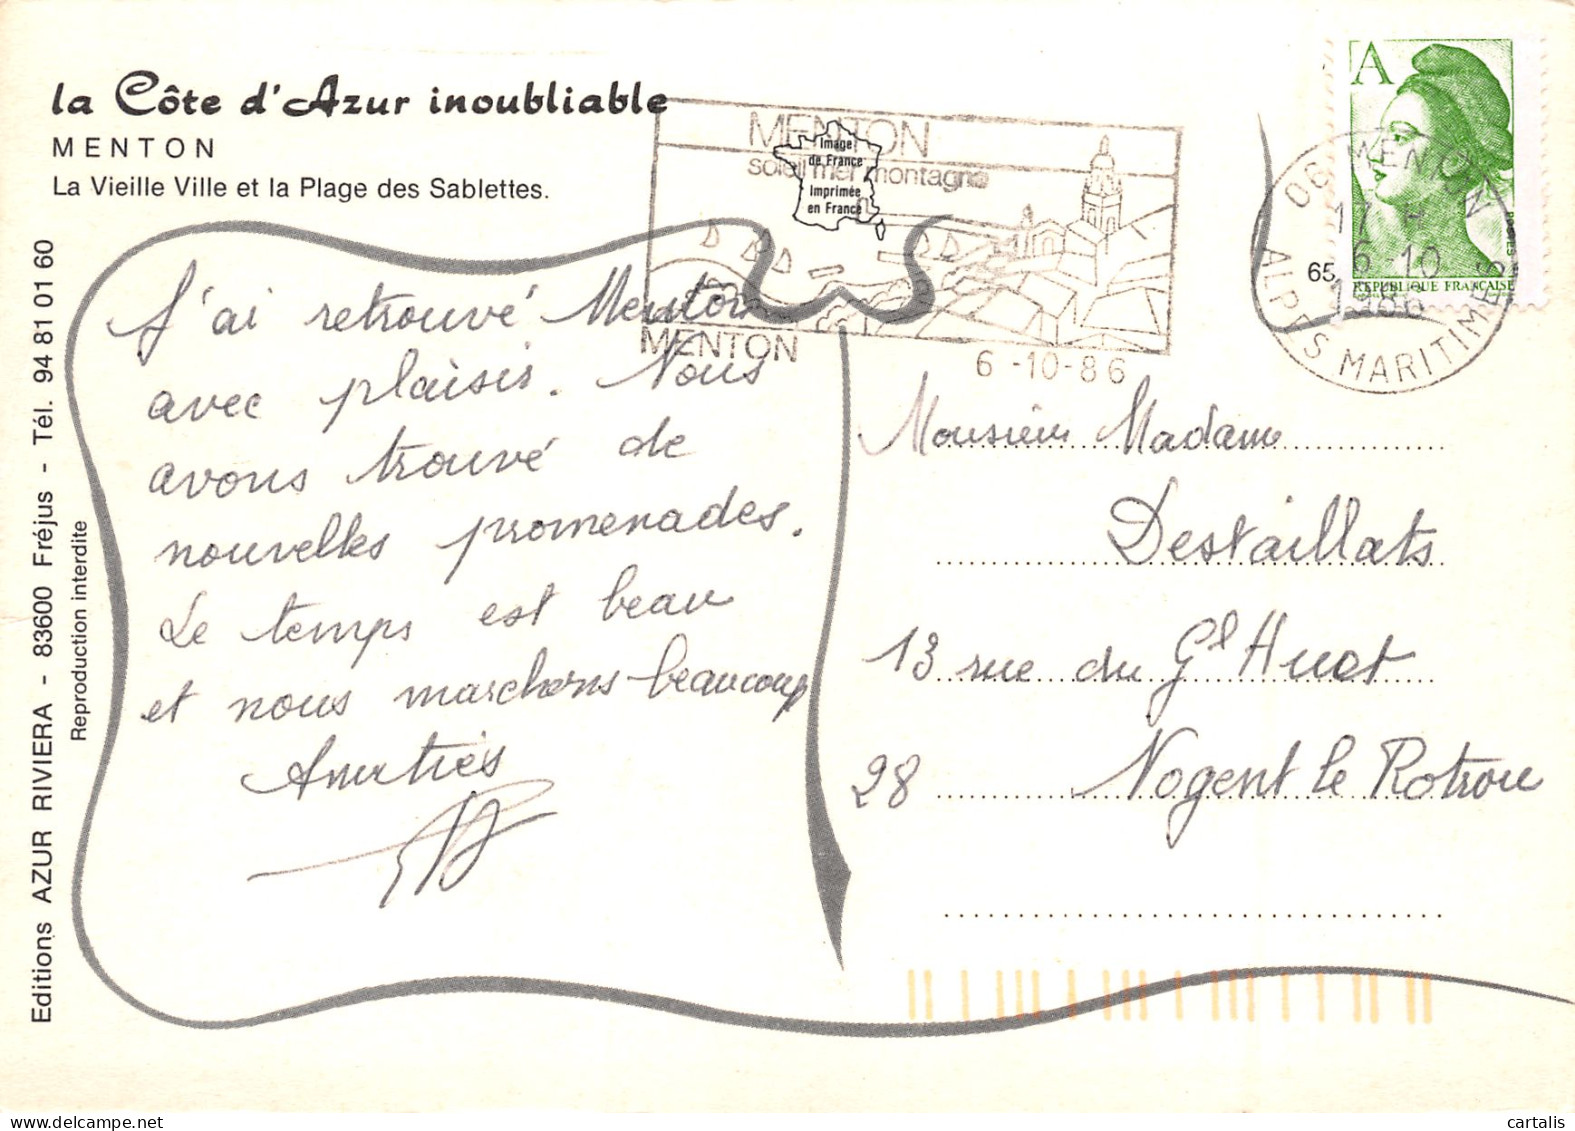 la Côte d'Azur inoubliable
MENTON
La Vieille Ville et la Plage des Sablettes.
MENTON
soleil mer montagne
Image
de France
Imprimée
en France
MENTON
6 -10-86
A
REPUBLIQUE FRANÇAISE
06 MENTON
17 H
6 10
1986
ALPES MARITIMES
65
J'ai retrouvé Menton
avec plaisir. Nous
avons trouvé de
nouvelles promenades.
Le temps est beau
et nous marchons beaucoup
Amitiés
Monsieur Madame
Destaillats
13 rue du Gl Huet
28 Nogent le Rotrou
Editions AZUR RIVIERA - 83600 Fréjus - Tél. 94 81 01 60
Reproduction interdite
cartalis